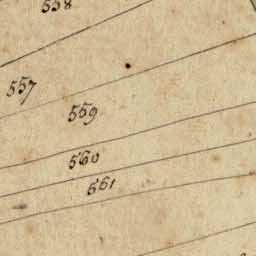 558
557
559
560
561